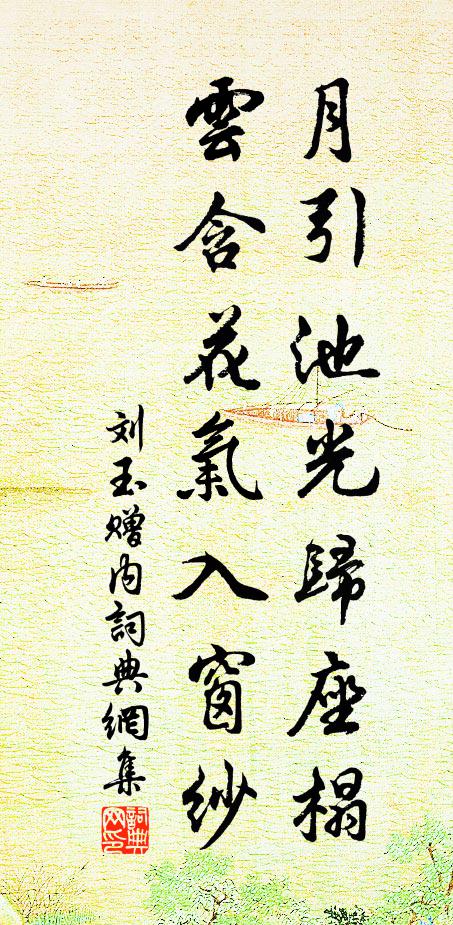 月引池光歸座榻
雲含花氣入窗紗
刘玉赠内詞典網集
詞典网印